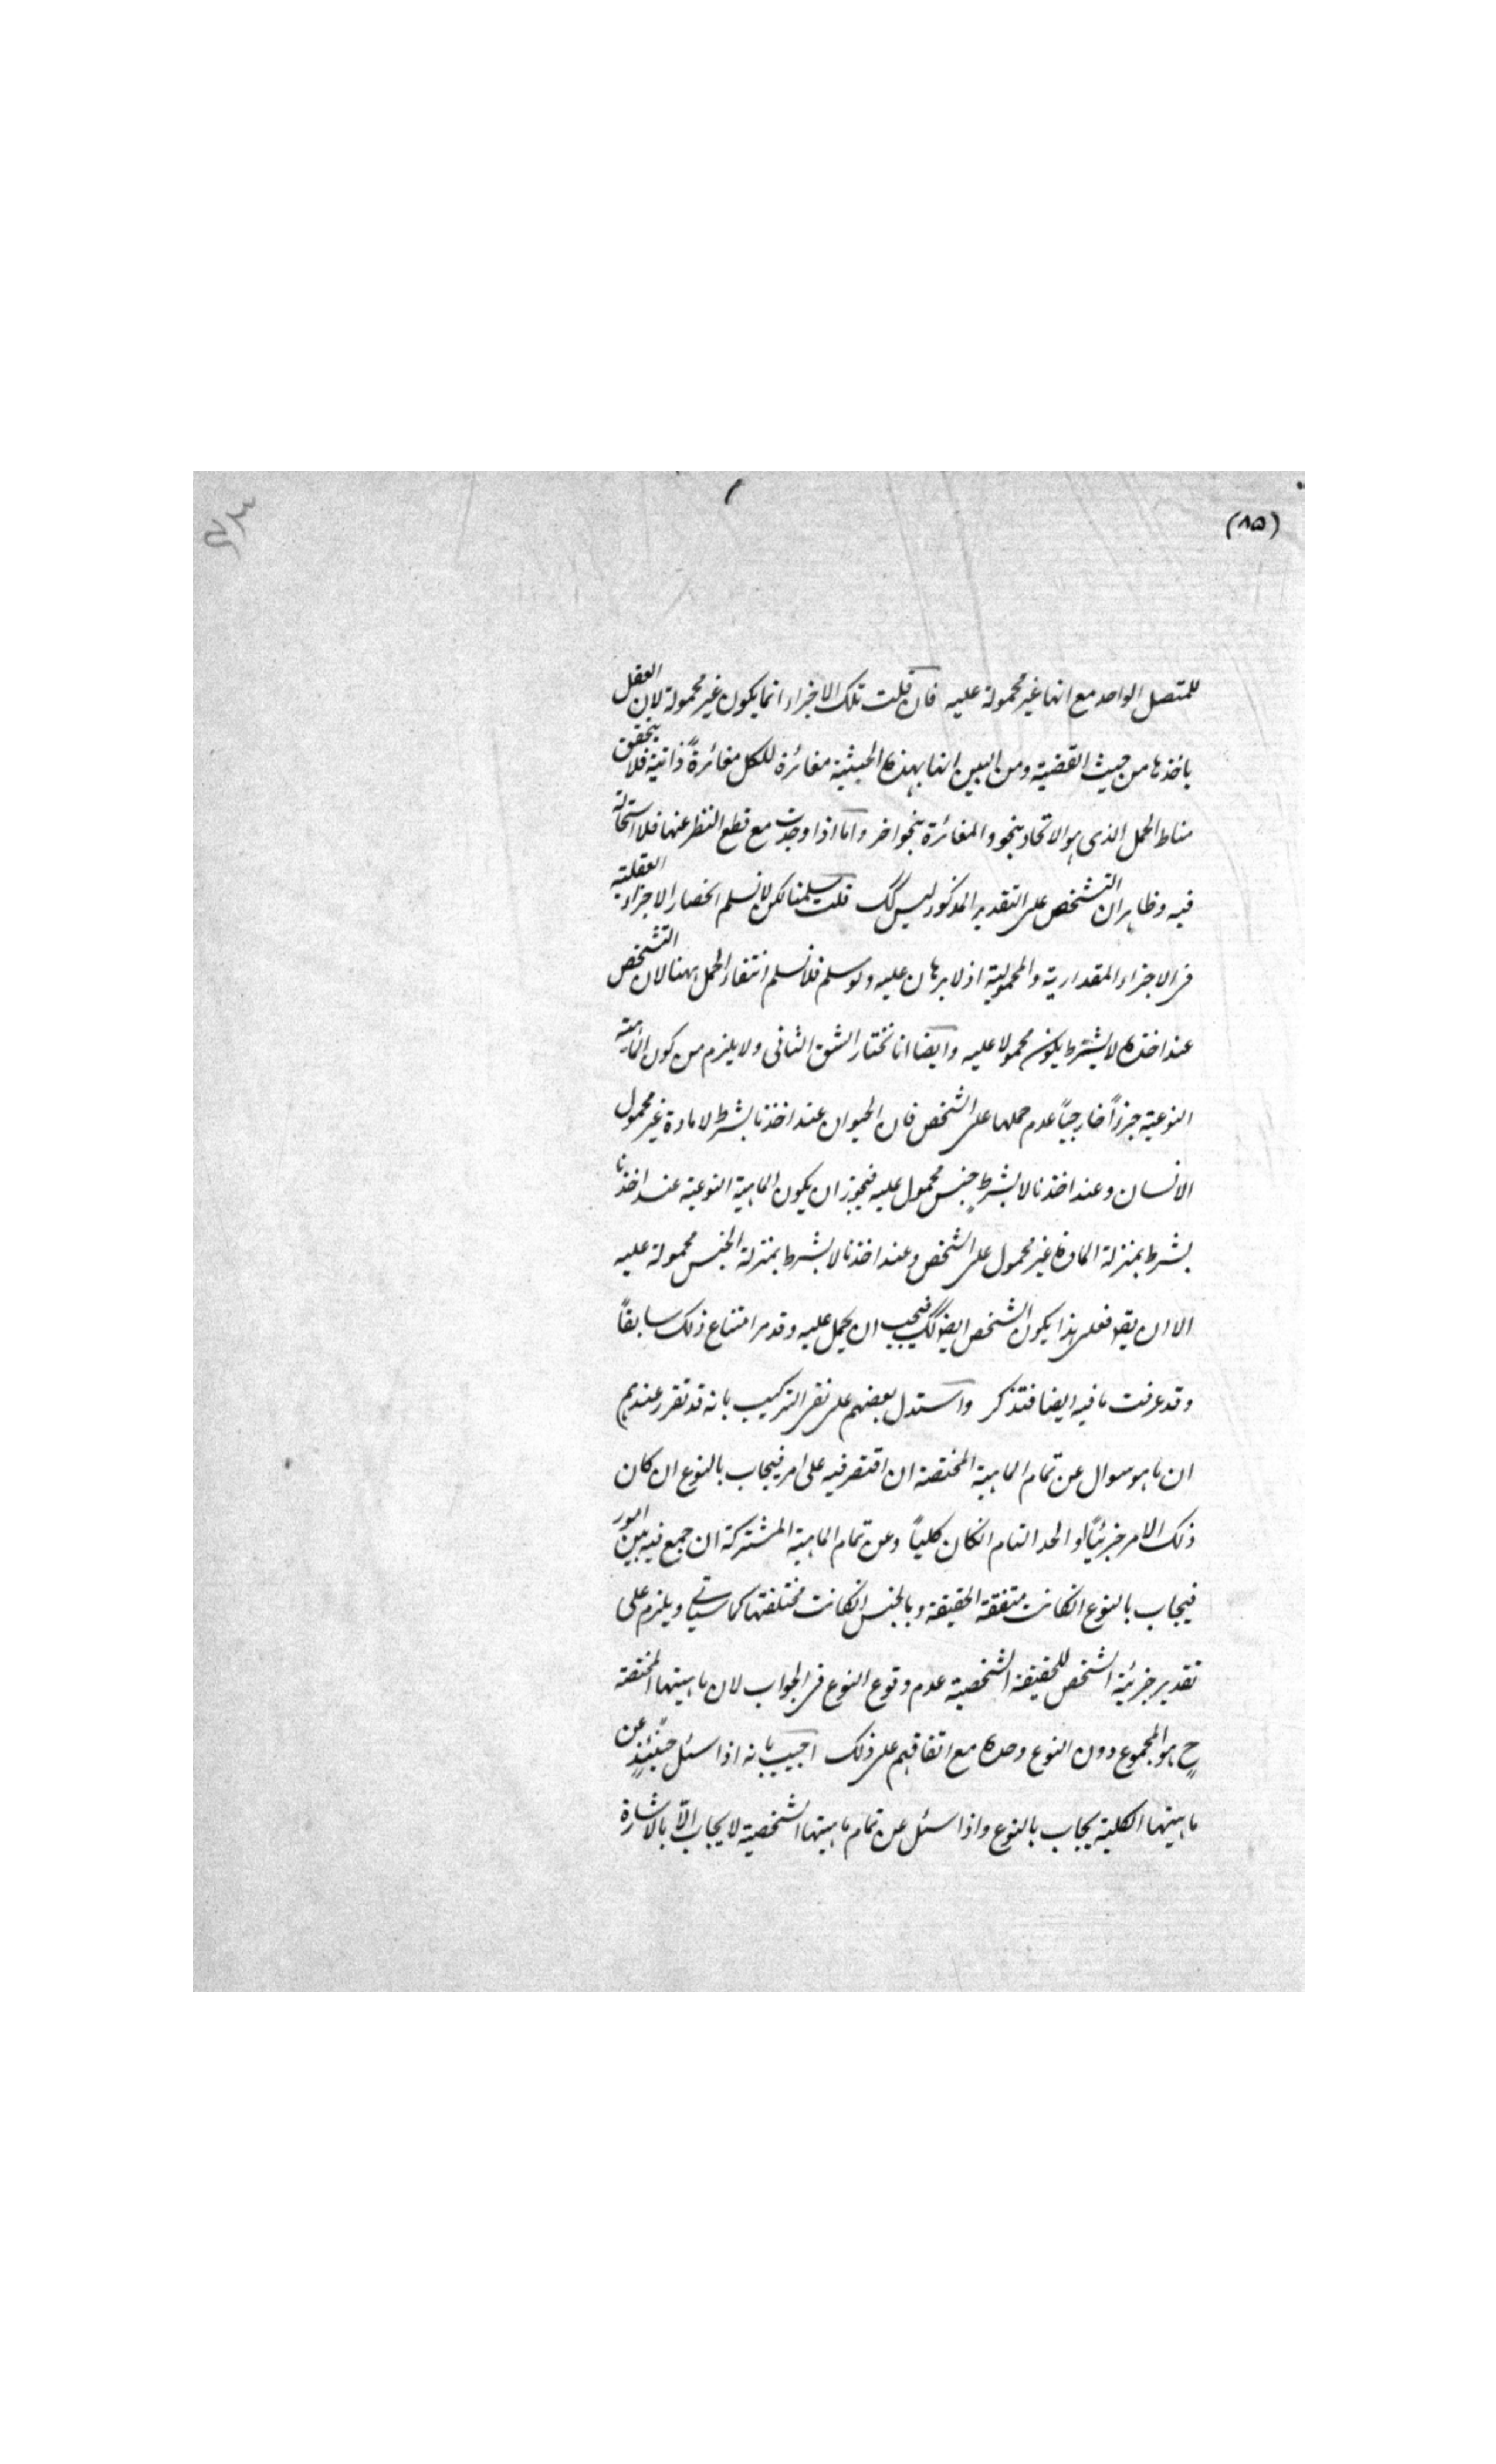 (٨٥)
للمتصل الواحد مع انها غير محمولة عليه فان قلت تلك الاجزاء انما يكون غير محمولة لان العقل
ياخذها من حيث القضية ومن البين انها بهذه الحيثية مغائرة للكل مغائرةً ذاتية فلا يتحقق
مناط الحمل الذى هو الاتحاد بنحو والمغائرة بنحو اخر واما اذا وجدت مع قطع النظر عنها فلا استحالة
فيه وظاهر ان التشخص على التقدير المذكور ليس كك قلت سلمنا لكن لا نسلم انحصار الاجزاء العقلية
فى الاجزاء المقدارية والمحمولية اذ لا برهان عليه ولو سلم فلا نسلم انتفاء الحمل ههنا لان التشخص
عند اخذه لا بشرط يكون محمولا عليه وايضا انا نختار الشق الثانى ولا يلزم من كون الماهية
النوعية جزءاً خارجياً عدم حملها على الشخص فان الحيوان عند اخذنا بشرط لا مادة غير محمول
الانسان وعند اخذنا لا بشرط جنس محمول عليه فيجوز ان يكون الماهية النوعية عند اخذنا
بشرط بمنزلة المادة غير محمول على الشخص وعند اخذنا لا بشرط بمنزلة الجنس محمولة عليه
الا ان يقو فعلى هذا يكون الشخص ايضا كك فيجب ان يحمل عليه وقد مر امتناع ذلك سابقاً
وقد عرفت ما فيه ايضا فتذكر واستدل بعضهم على نفى التركيب بانه قد تقرر عندهم
ان ما هو سوال عن تمام الماهية المختصة ان اقتصر فيه على امر فيجاب بالنوع ان كان
ذلك الامر جزئياً او الحد التام انكان كلياً وعن تمام الماهية المشتركة ان جمع فيه بين امور
فيجاب بالنوع انكانت متفقة الحقيقة وبالجنس انكانت مختلفتها كما سياتى ويلزم على
تقدير جزئية الشخص للحقيقة الشخصية عدم وقوع النوع فى الجواب لان ماهيتها المختصة
ح هو المجموع دون النوع وحده مع اتفاقهم على ذلك اجيب بانه اذا سئل حينئذٍ عن
ماهيتها الكلية يجاب بالنوع واذا سئل عن تمام ماهيتها الشخصية لا يجاب الّا بالاشارة